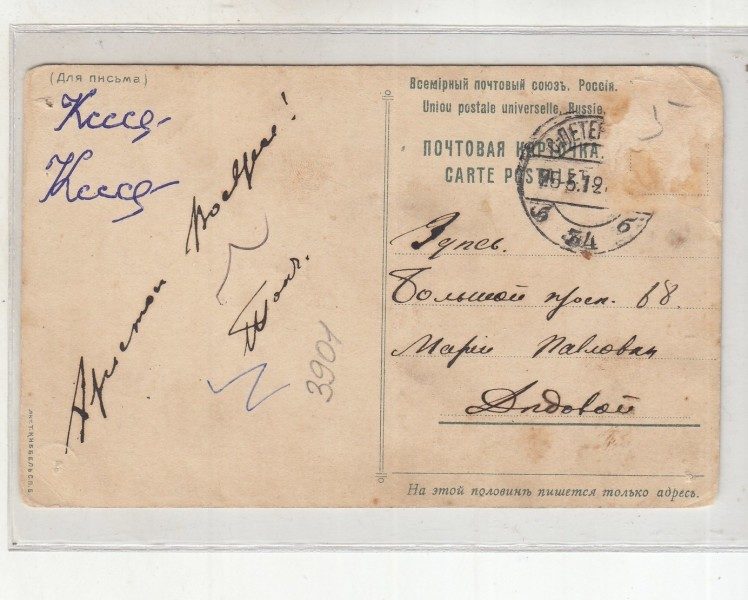 (Для письма)
Христосъ Воскресе!
3901
Всемірный почтовый союзъ. Россія.
Union postale universelle. Russie.
ПОЧТОВАЯ КАРТОЧКА.
CARTE POSTALE
С-ПЕТЕР
5.12
34
б
Здѣсь.
Большой просп. 68.
Маріи Павловнѣ
Дидовой
На этой половинѣ пишется только адресъ.